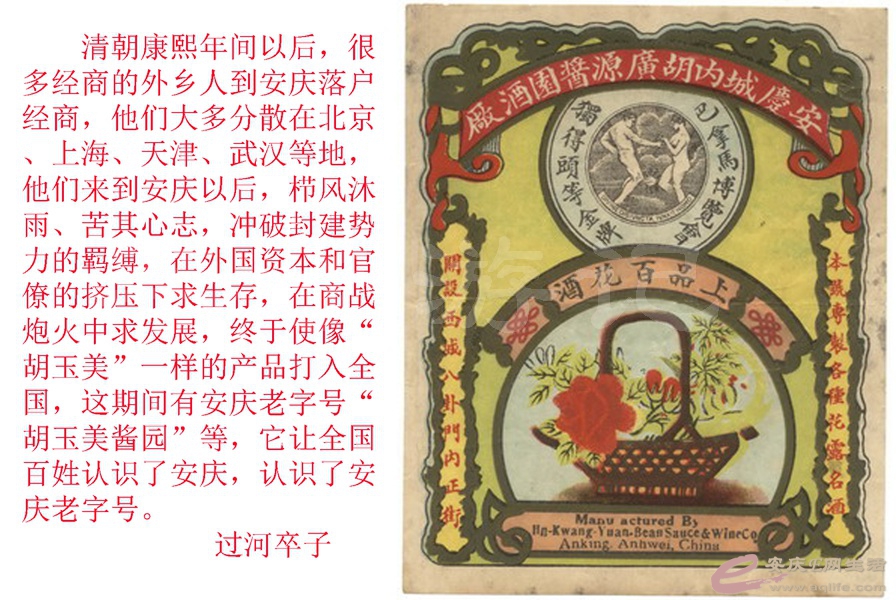 清朝康熙年间以后，很
多经商的外乡人到安庆落户
经商，他们大多分散在北京
、上海、天津、武汉等地，
他们来到安庆以后，栉风沐
雨、苦其心志，冲破封建势
力的羁缚，在外国资本和官
僚的挤压下求生存，在商战
炮火中求发展，终于使像“
胡玉美”一样的产品打入全
国，这期间有安庆老字号“
胡玉美酱园”等，它让全国
百姓认识了安庆，认识了安
庆老字号。
过河卒子
安慶城内胡廣源醬園酒廠
巴拿馬博覽會
獨得頭等金牌
上品百花酒
本號專製各種花露名酒
開設西城八卦門内正街
Manu actured By
Hu-Kwang-Yuan-Bean Sauce & Wine Co
Anking, Anhwei, China
安庆E网生活
www.aqlife.com